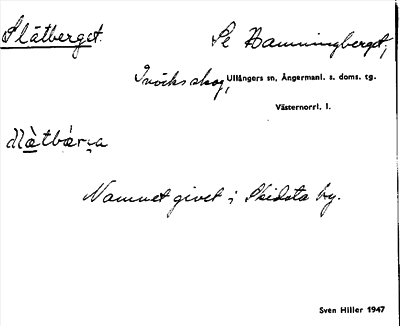 Slätberget.
Se Hamningberget,
Inviks skog, Ullångers sn, Ångermanl. s. doms. tg.
Västernorrl. l.
Namnet givet i Skidsta by.
Sven Hiller 1947